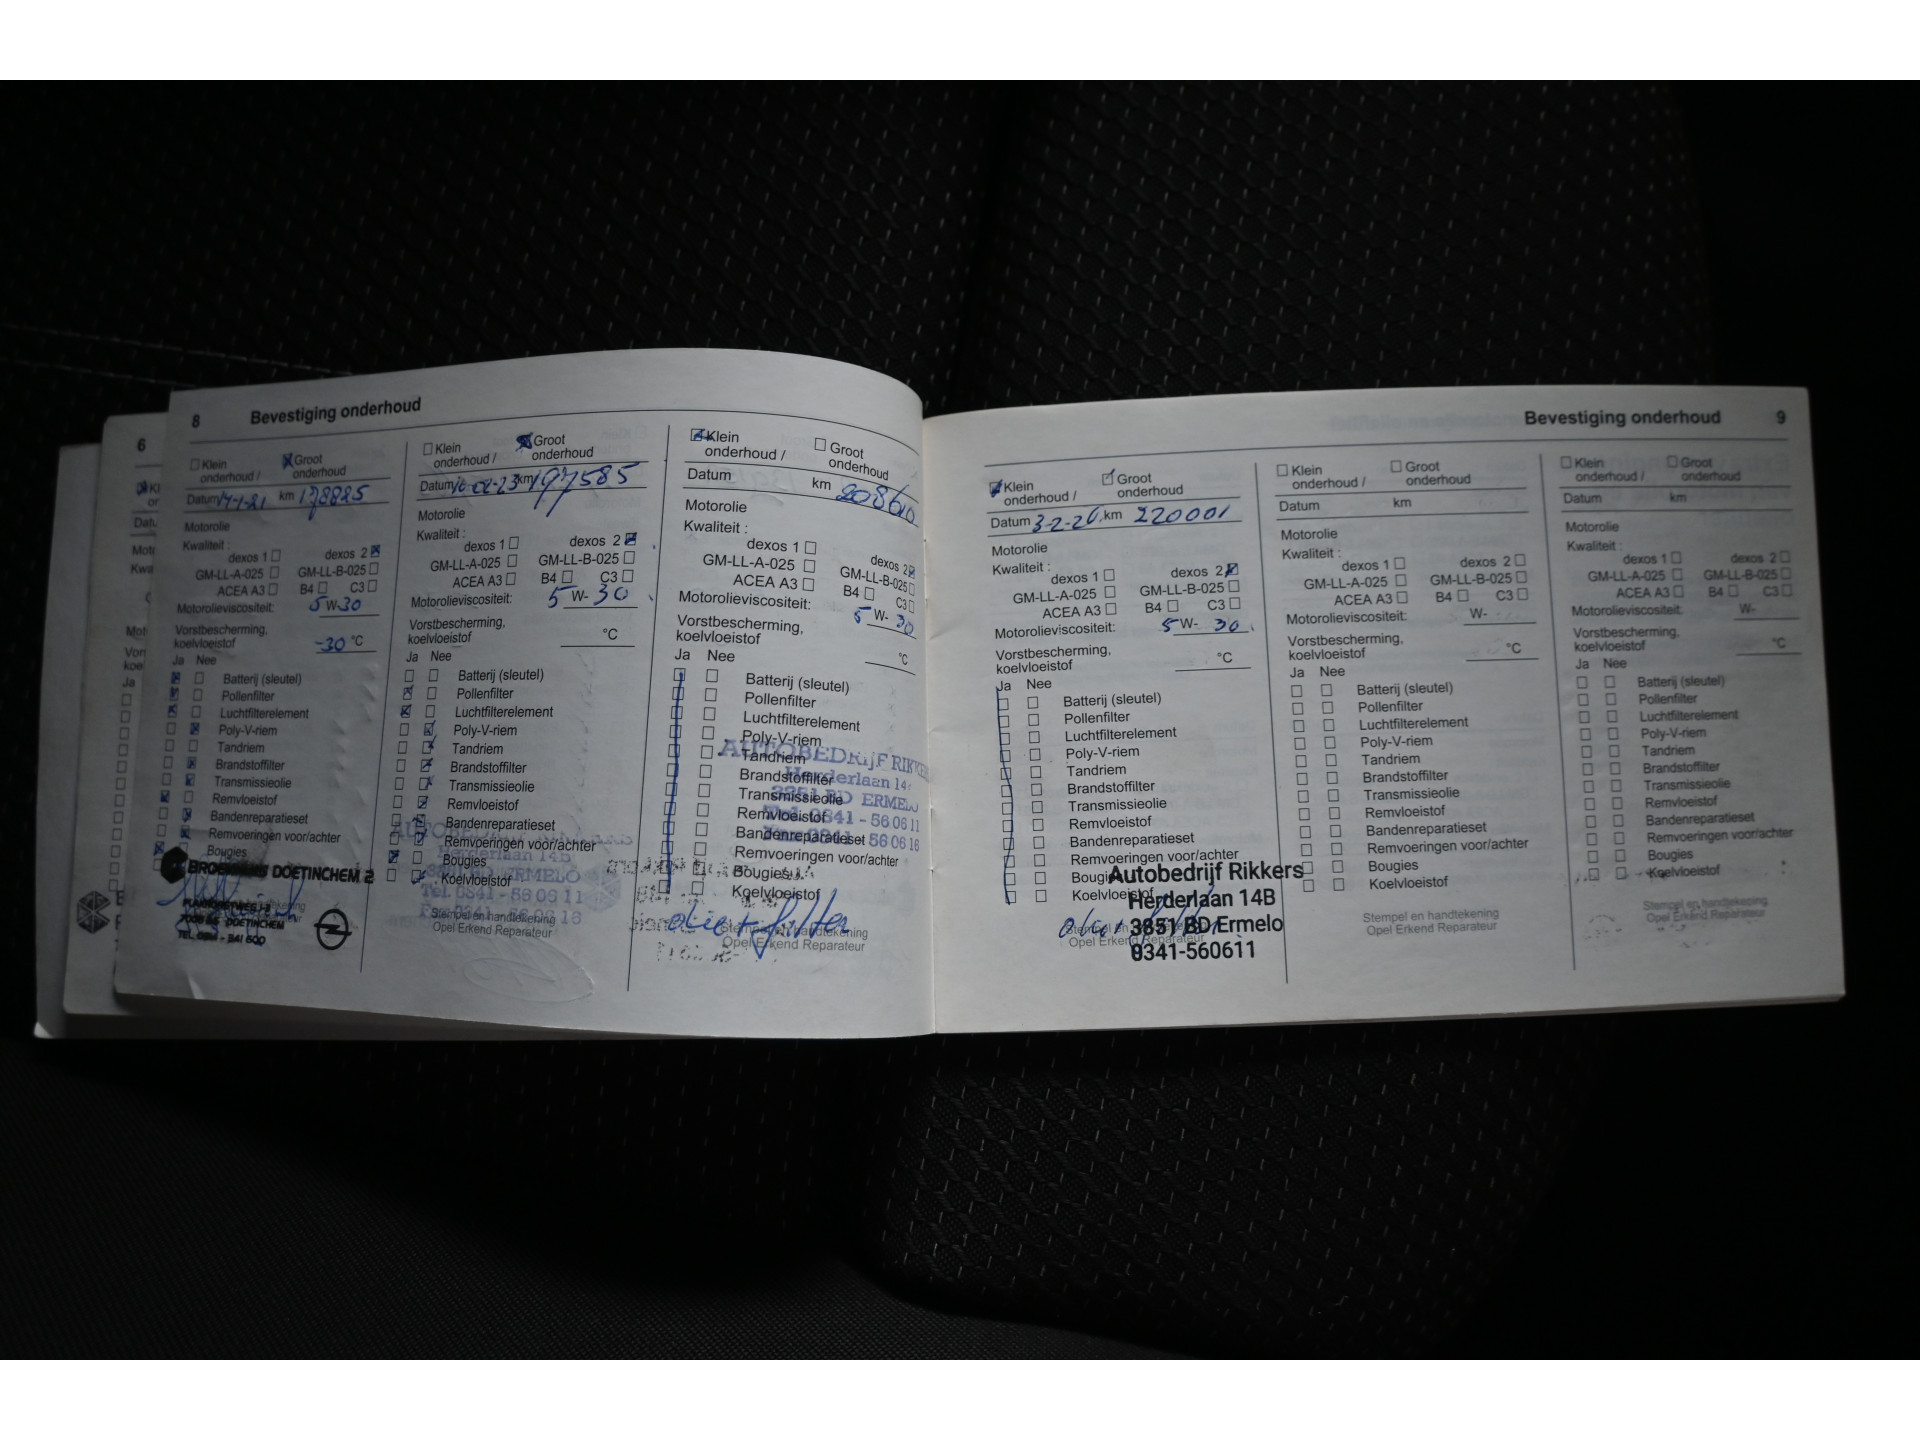 6
8 Bevestiging onderhoud
Klein onderhoud / Groot onderhoud
Datum 14-1-21 km 178825
Motorolie
Kwaliteit :
dexos 1 dexos 2
GM-LL-A-025 GM-LL-B-025
ACEA A3 B4 C3
Motorolieviscositeit: 5 W- 30
Vorstbescherming,
koelvloeistof -30 °C
Ja Nee
Batterij (sleutel)
Pollenfilter
Luchtfilterelement
Poly-V-riem
Tandriem
Brandstoffilter
Transmissieolie
Remvloeistof
Bandenreparatieset
Remvoeringen voor/achter
Bougies
DOETINCHEM 2
DOETINCHEM
Klein onderhoud / Groot onderhoud
Datum 10-02-23 km 197585
Motorolie
Kwaliteit :
dexos 1 dexos 2
GM-LL-A-025 GM-LL-B-025
ACEA A3 B4 C3
Motorolieviscositeit: 5 W- 30
Vorstbescherming,
koelvloeistof °C
Ja Nee
Batterij (sleutel)
Pollenfilter
Luchtfilterelement
Poly-V-riem
Tandriem
Brandstoffilter
Transmissieolie
Remvloeistof
Bandenreparatieset
Remvoeringen voor/achter
Bougies
Koelvloeistof
Herderlaan 14b
ERMELO
Tel. 0341 - 56 06 11
Stempel en handtekening
Opel Erkend Reparateur
Klein onderhoud / Groot onderhoud
Datum km 208610
Motorolie
Kwaliteit :
dexos 1 dexos 2
GM-LL-A-025 GM-LL-B-025
ACEA A3 B4 C3
Motorolieviscositeit: 5 W- 30
Vorstbescherming,
koelvloeistof °C
Ja Nee
Batterij (sleutel)
Pollenfilter
Luchtfilterelement
Poly-V-riem
AUTOBEDRIJF
Tandriem
Herderlaan 14
Brandstoffilter
3851 BD ERMELO
Transmissieolie
Tel. 0341 - 56 06 11
Remvloeistof
Fax 0341 - 56 06 16
Bandenreparatieset
Remvoeringen voor/achter
Bougies
Koelvloeistof
olie + filter
Stempel en handtekening
Opel Erkend Reparateur
Bevestiging onderhoud 9
Klein onderhoud / Groot onderhoud
Datum 3-2-26 km 220001
Motorolie
Kwaliteit :
dexos 1 dexos 2
GM-LL-A-025 GM-LL-B-025
ACEA A3 B4 C3
Motorolieviscositeit: 5 W- 30
Vorstbescherming,
koelvloeistof °C
Ja Nee
Batterij (sleutel)
Pollenfilter
Luchtfilterelement
Poly-V-riem
Tandriem
Brandstoffilter
Transmissieolie
Remvloeistof
Bandenreparatieset
Remvoeringen voor/achter
Bougies
Autobedrijf Rikkers
Koelvloeistof
Herderlaan 14B
3851 BD Ermelo
Stempel en
Opel Erkend Reparateur
0341-560611
Klein onderhoud / Groot onderhoud
Datum km
Motorolie
Kwaliteit :
dexos 1 dexos 2
GM-LL-A-025 GM-LL-B-025
ACEA A3 B4 C3
Motorolieviscositeit: W-
Vorstbescherming,
koelvloeistof °C
Ja Nee
Batterij (sleutel)
Pollenfilter
Luchtfilterelement
Poly-V-riem
Tandriem
Brandstoffilter
Transmissieolie
Remvloeistof
Bandenreparatieset
Remvoeringen voor/achter
Bougies
Koelvloeistof
Stempel en handtekening
Opel Erkend Reparateur
Klein onderhoud / Groot onderhoud
Datum km
Motorolie
Kwaliteit :
dexos 1 dexos 2
GM-LL-A-025 GM-LL-B-025
ACEA A3 B4 C3
Motorolieviscositeit: W-
Vorstbescherming,
koelvloeistof °C
Ja Nee
Batterij (sleutel)
Pollenfilter
Luchtfilterelement
Poly-V-riem
Tandriem
Brandstoffilter
Transmissieolie
Remvloeistof
Bandenreparatieset
Remvoeringen voor/achter
Bougies
Koelvloeistof
Stempel en handtekening
Opel Erkend Reparateur